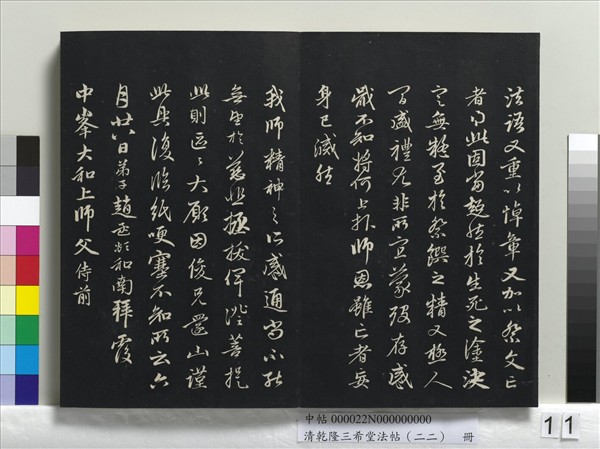 法語又重以悼章又加以祭文亡
者得此固當超然於生死之途決
定無疑至於祭饌之精又極人
間盛禮尤非所宜蒙歿存感
戴不知將何上報師恩雖亡者妄
身已滅然
我師精神之所感通尚不能
無望於慈悲拯拔俾證菩提
此則區區大願因俊兄還山謹
此具復臨紙哽塞不知所云六
月廿六日弟子趙孟頫和南拜覆
中峯大和上師父侍前
中帖 000022N000000000
清乾隆三希堂法帖(二二) 冊
11